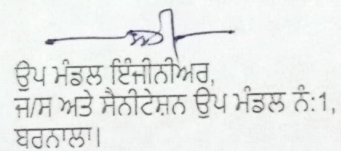 ਉਪ ਮੰਡਲ ਇੰਜੀਨੀਅਰ,
ਜ/ਸ ਅਤੇ ਸੈਨੀਟੇਸ਼ਨ ਉਪ ਮੰਡਲ ਨੰ:1,
ਬਰਨਾਲਾ।